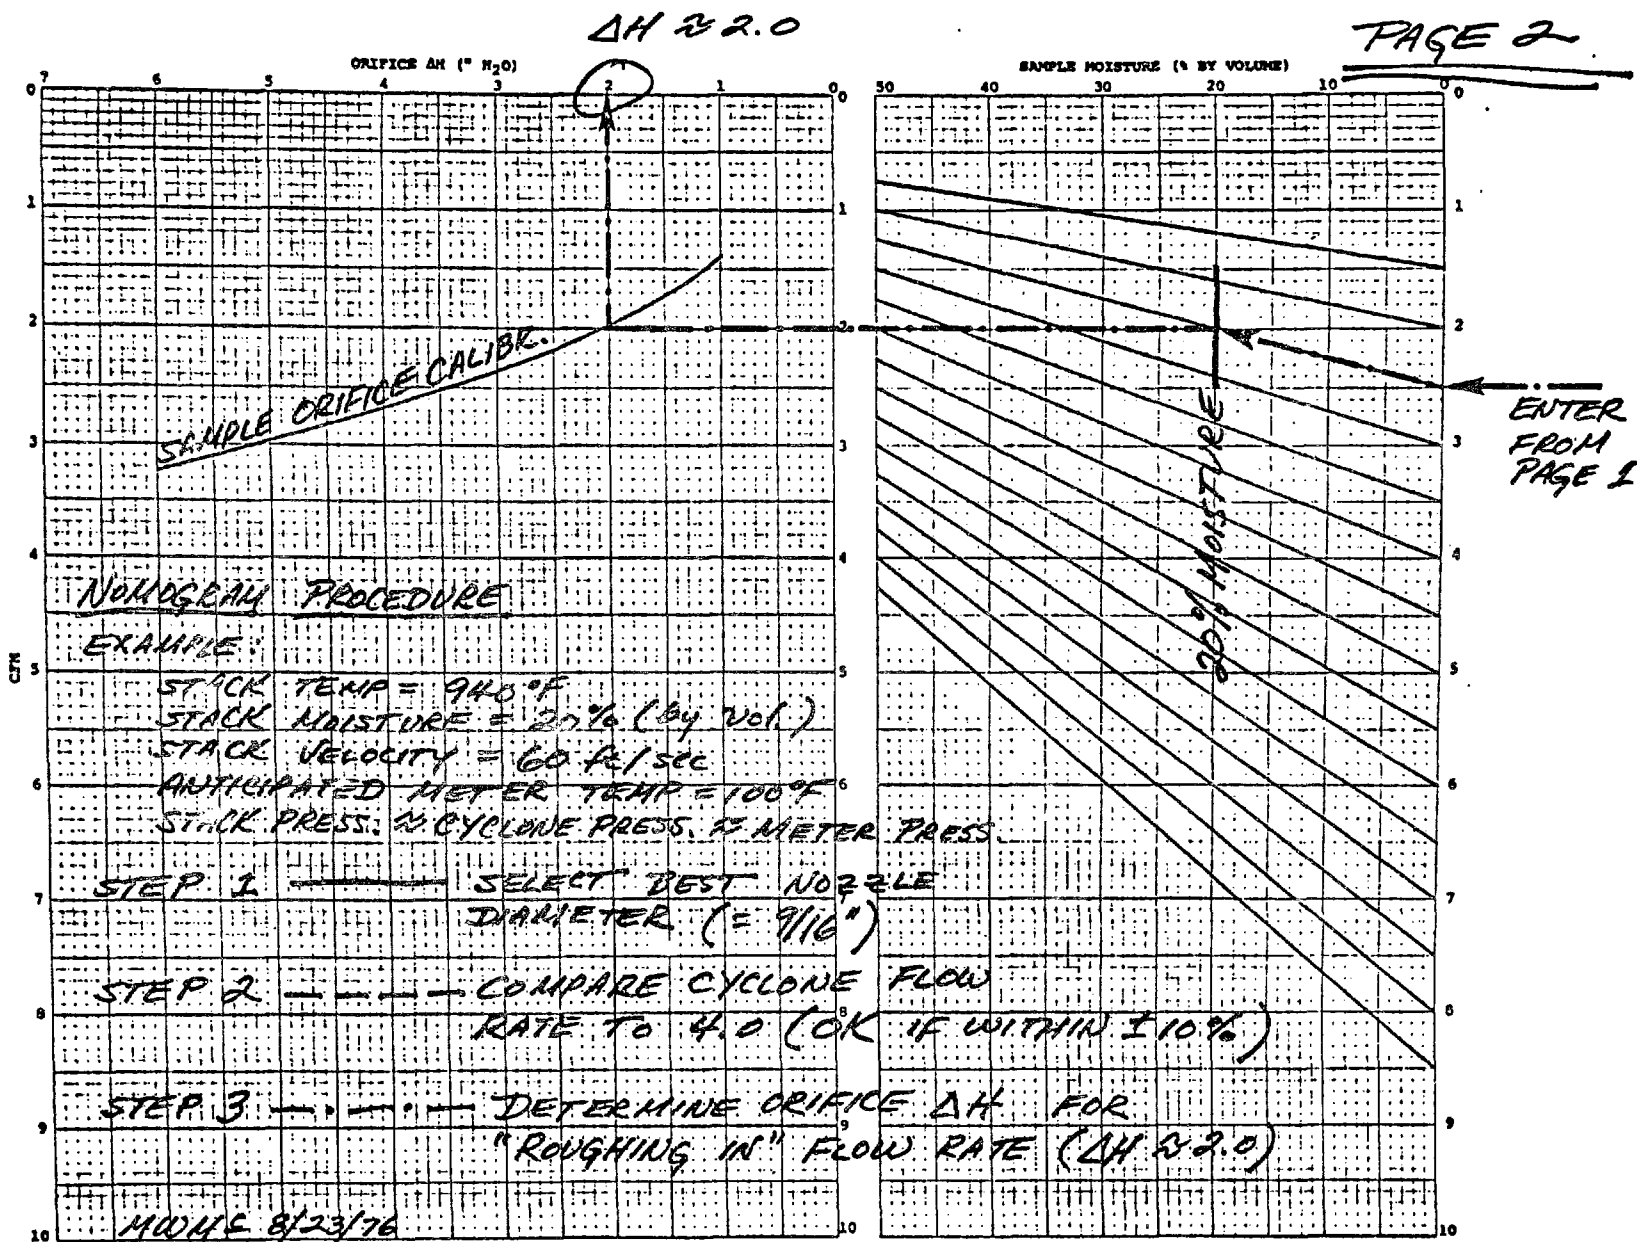 ΔH ≈ 2.0
PAGE 2
ORIFICE ΔH (" H₂O)
SAMPLE MOISTURE (% BY VOLUME)
7 6 5 4 3 2 1 0
50 40 30 20 10 0
0 1 2 3 4 5 6 7 8 9 10
CFM
0 1 2 3 4 5 6 7 8 9 10
0 1 2 3 4 5 6 7 8 9 10
SAMPLE ORIFICE CALIBR.
20% MOISTURE
ENTER
FROM
PAGE 1
NOMOGRAM PROCEDURE
EXAMPLE:
STACK TEMP = 940°F
STACK MOISTURE = 20% (by vol.)
STACK VELOCITY = 60 ft/sec
ANTICIPATED METER TEMP = 100°F
STACK PRESS. ≈ CYCLONE PRESS. ≈ METER PRESS.
STEP 1 SELECT BEST NOZZLE
DIAMETER (= 9/16")
STEP 2 COMPARE CYCLONE FLOW
RATE TO 4.0 (OK IF WITHIN ± 10%)
STEP 3 DETERMINE ORIFICE ΔH FOR
"ROUGHING IN" FLOW RATE (ΔH ≈ 2.0)
8/23/76